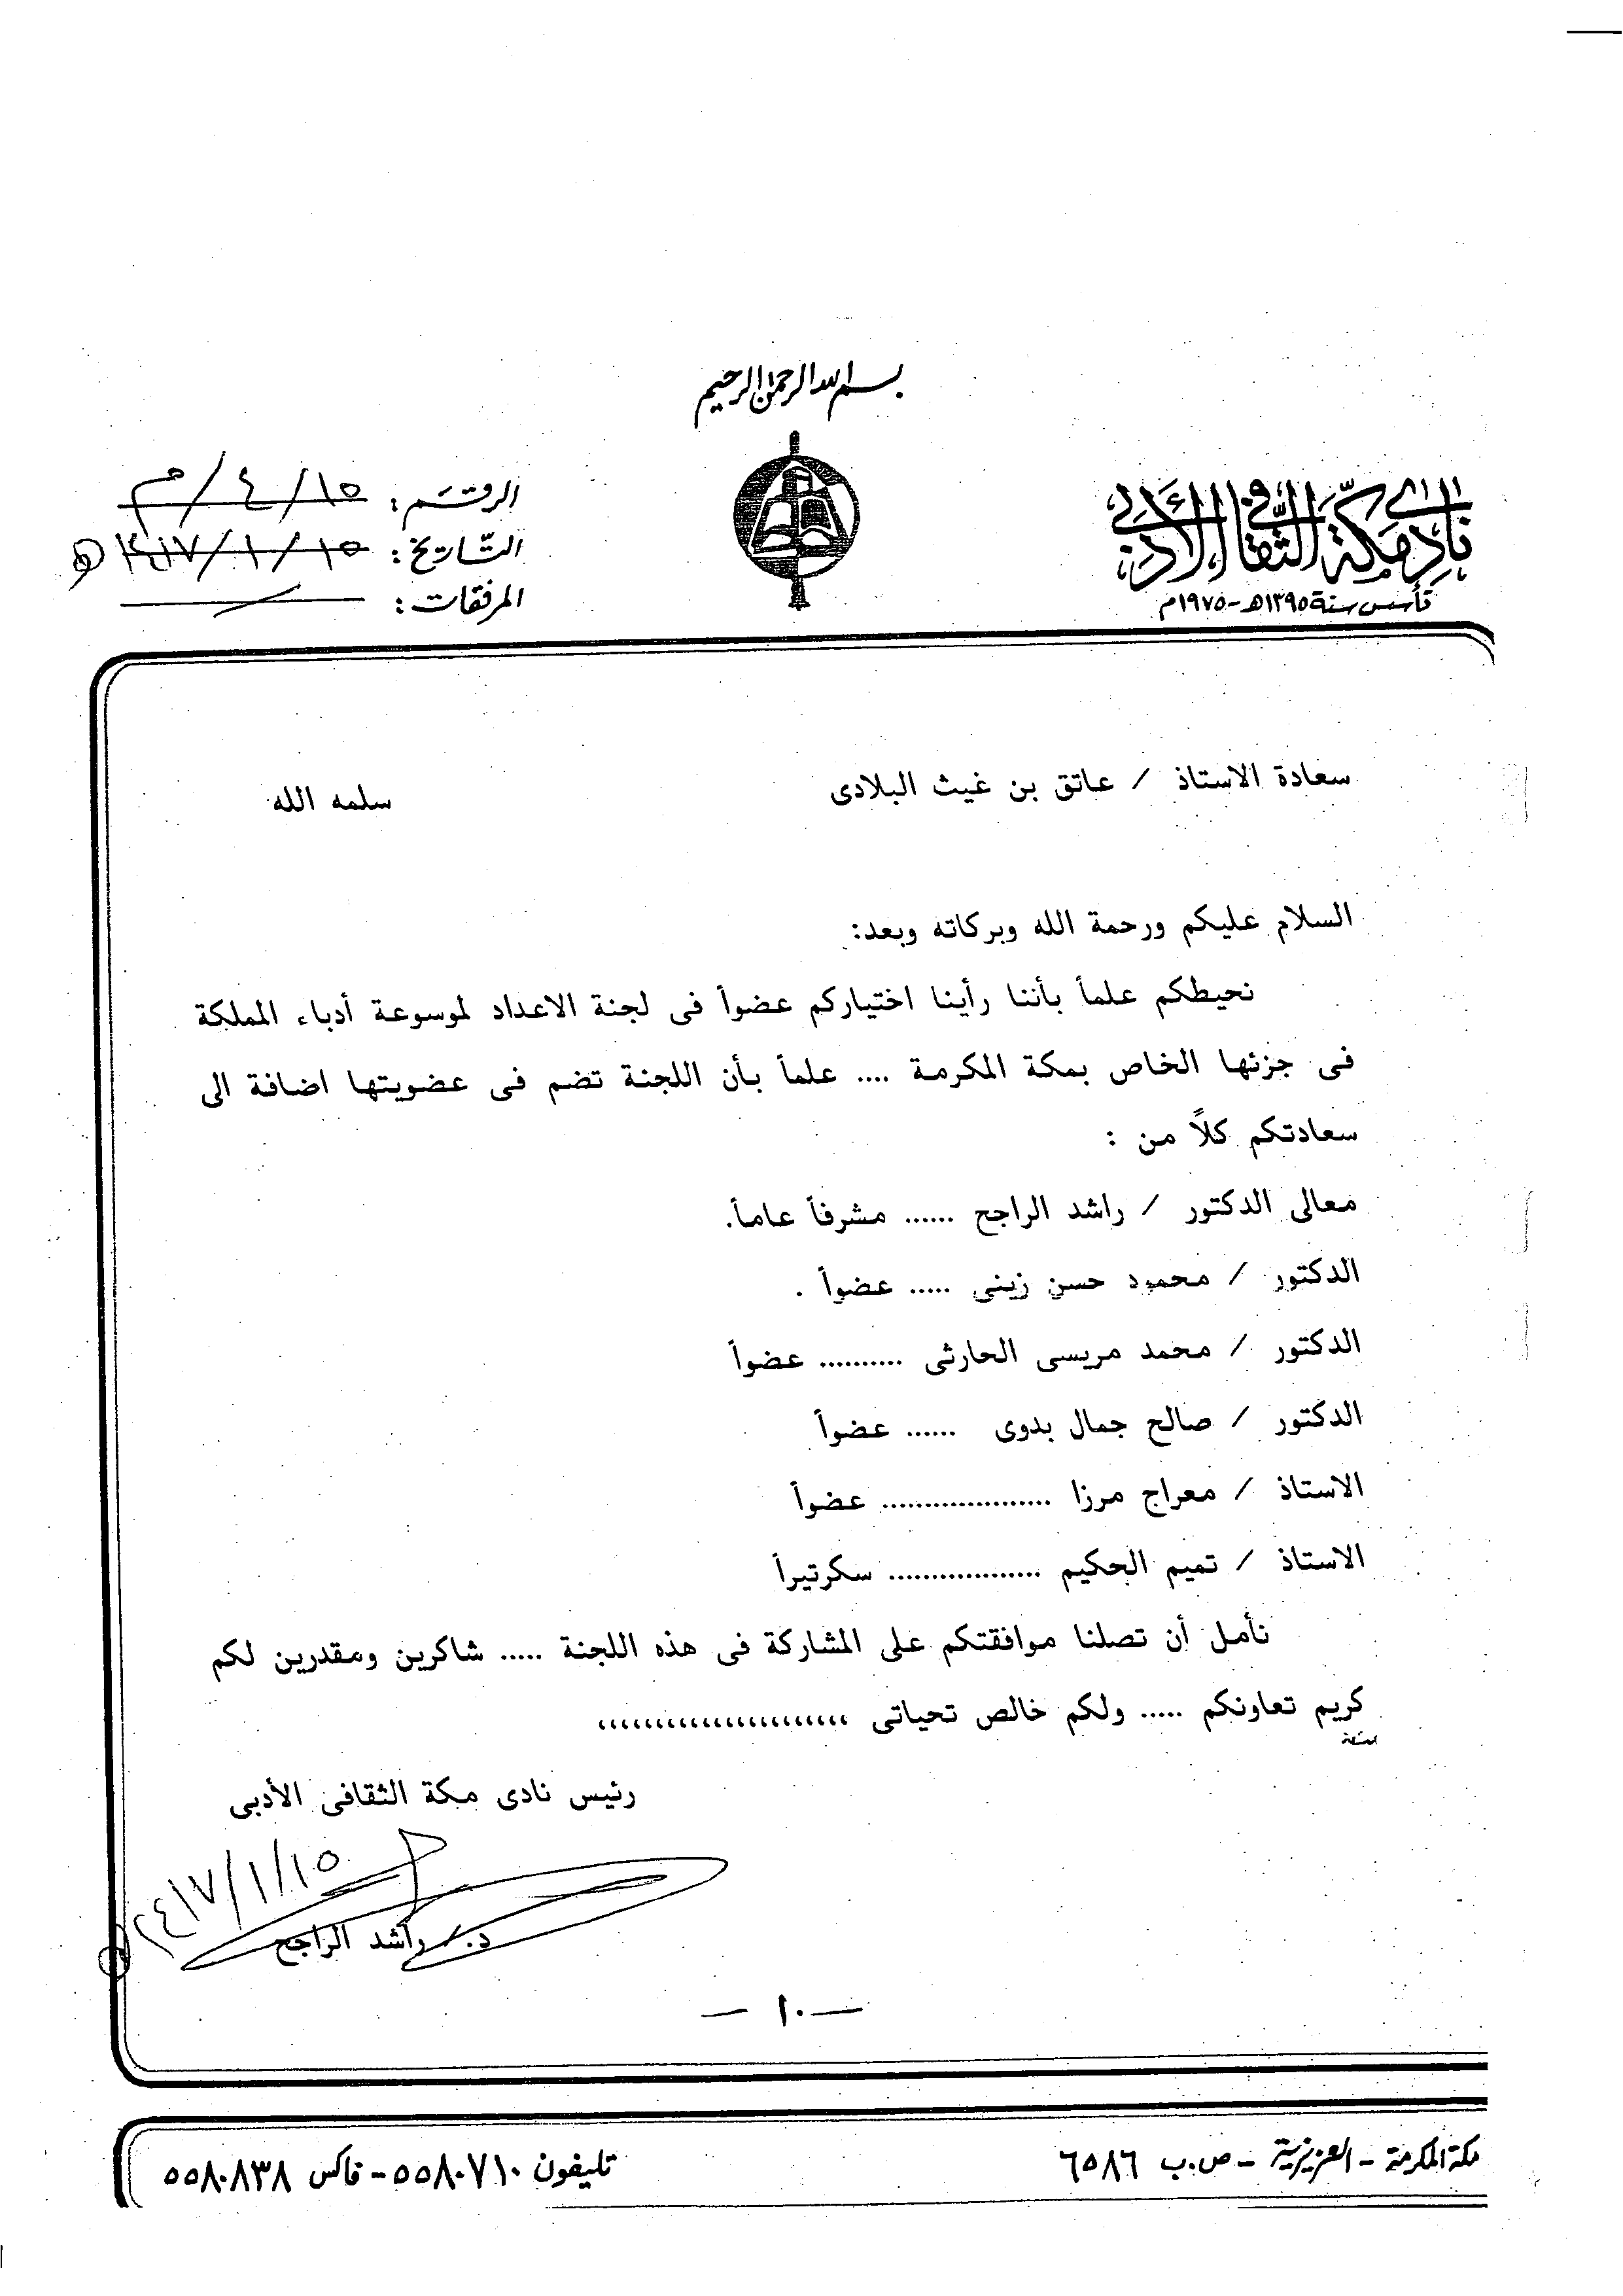 بسم الله الرحمن الرحيم
نادي مكة الثقافي الأدبي
تأسس سنة ١٣٩٥هـ-١٩٧٥م
الرقم: ١٥/ ٤/ م
التاريخ: ١٥/ ١/ ١٤١٧هـ
المرفقات:
سعادة الاستاذ / عاتق بن غيث البلادى سلمه الله
السلام عليكم ورحمة الله وبركاته وبعد:
نحيطكم علماً بأننا رأينا اختياركم عضواً فى لجنة الاعداد لموسوعة أدباء المملكة
فى جزئها الخاص بمكة المكرمة .... علماً بأن اللجنة تضم فى عضويتها اضافة الى
سعادتكم كلاً من :
معالى الدكتور / راشد الراجح ...... مشرفاً عاماً.
الدكتور / محمود حسن زينى ..... عضواً .
الدكتور / محمد مريسى الحارثى .......... عضواً
الدكتور / صالح جمال بدوى ...... عضواً
الاستاذ / معراج مرزا .................... عضواً
الاستاذ / تميم الحكيم .................. سكرتيراً
نأمل أن تصلنا موافقتكم على المشاركة فى هذه اللجنة ..... شاكرين ومقدرين لكم
كريم تعاونكم ..... ولكم خالص تحياتى ،،،،،،،،،،،،،،،،،،،،،،
رئيس نادى مكة الثقافى الأدبى
١٤١٧/١/١٥هـ
د./ راشد الراجح
— ١٠ —
مكة المكرمة - العزيزية - ص.ب ٦٥٨٦
تليفون ٥٥٨٠٧١٠ - فاكس ٥٥٨٠٨٣٨